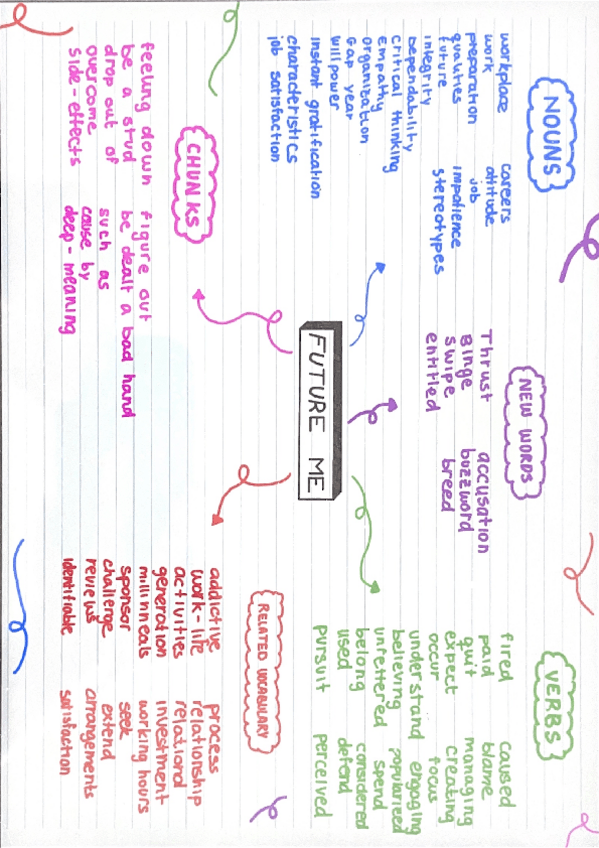 NOUNS
workplace
work
preparation
qualities
future
integrity
dependability
critical thinking
Empathy
organization
Gap year
willpower
instant gratification
characteristics
job satisfaction
careers
attitude
job
impatience
stereotypes
NEW WORDS
Thrust
Binge
swipe
entitled
accusation
buzzword
breed
VERBS
fired
paid
quit
expect
occur
understand
believing
unfettered
belong
used
pursuit
caused
blame
managing
creating
focus
engaging
popularised
spend
considered
defend
perceived
FUTURE ME
CHUNKS
feeling down
be a stud
drop out of
overcome
side-effects
figure out
be dealt a bad hand
such as
cause by
deep-meaning
RELATED VOCABULARY
addictive
work-life
activities
generation
millinneals
sponsor
challenge
reviews
identifiable
process
relationship
relationd
investment
working hours
seek
extend
arrangements
satisfaction